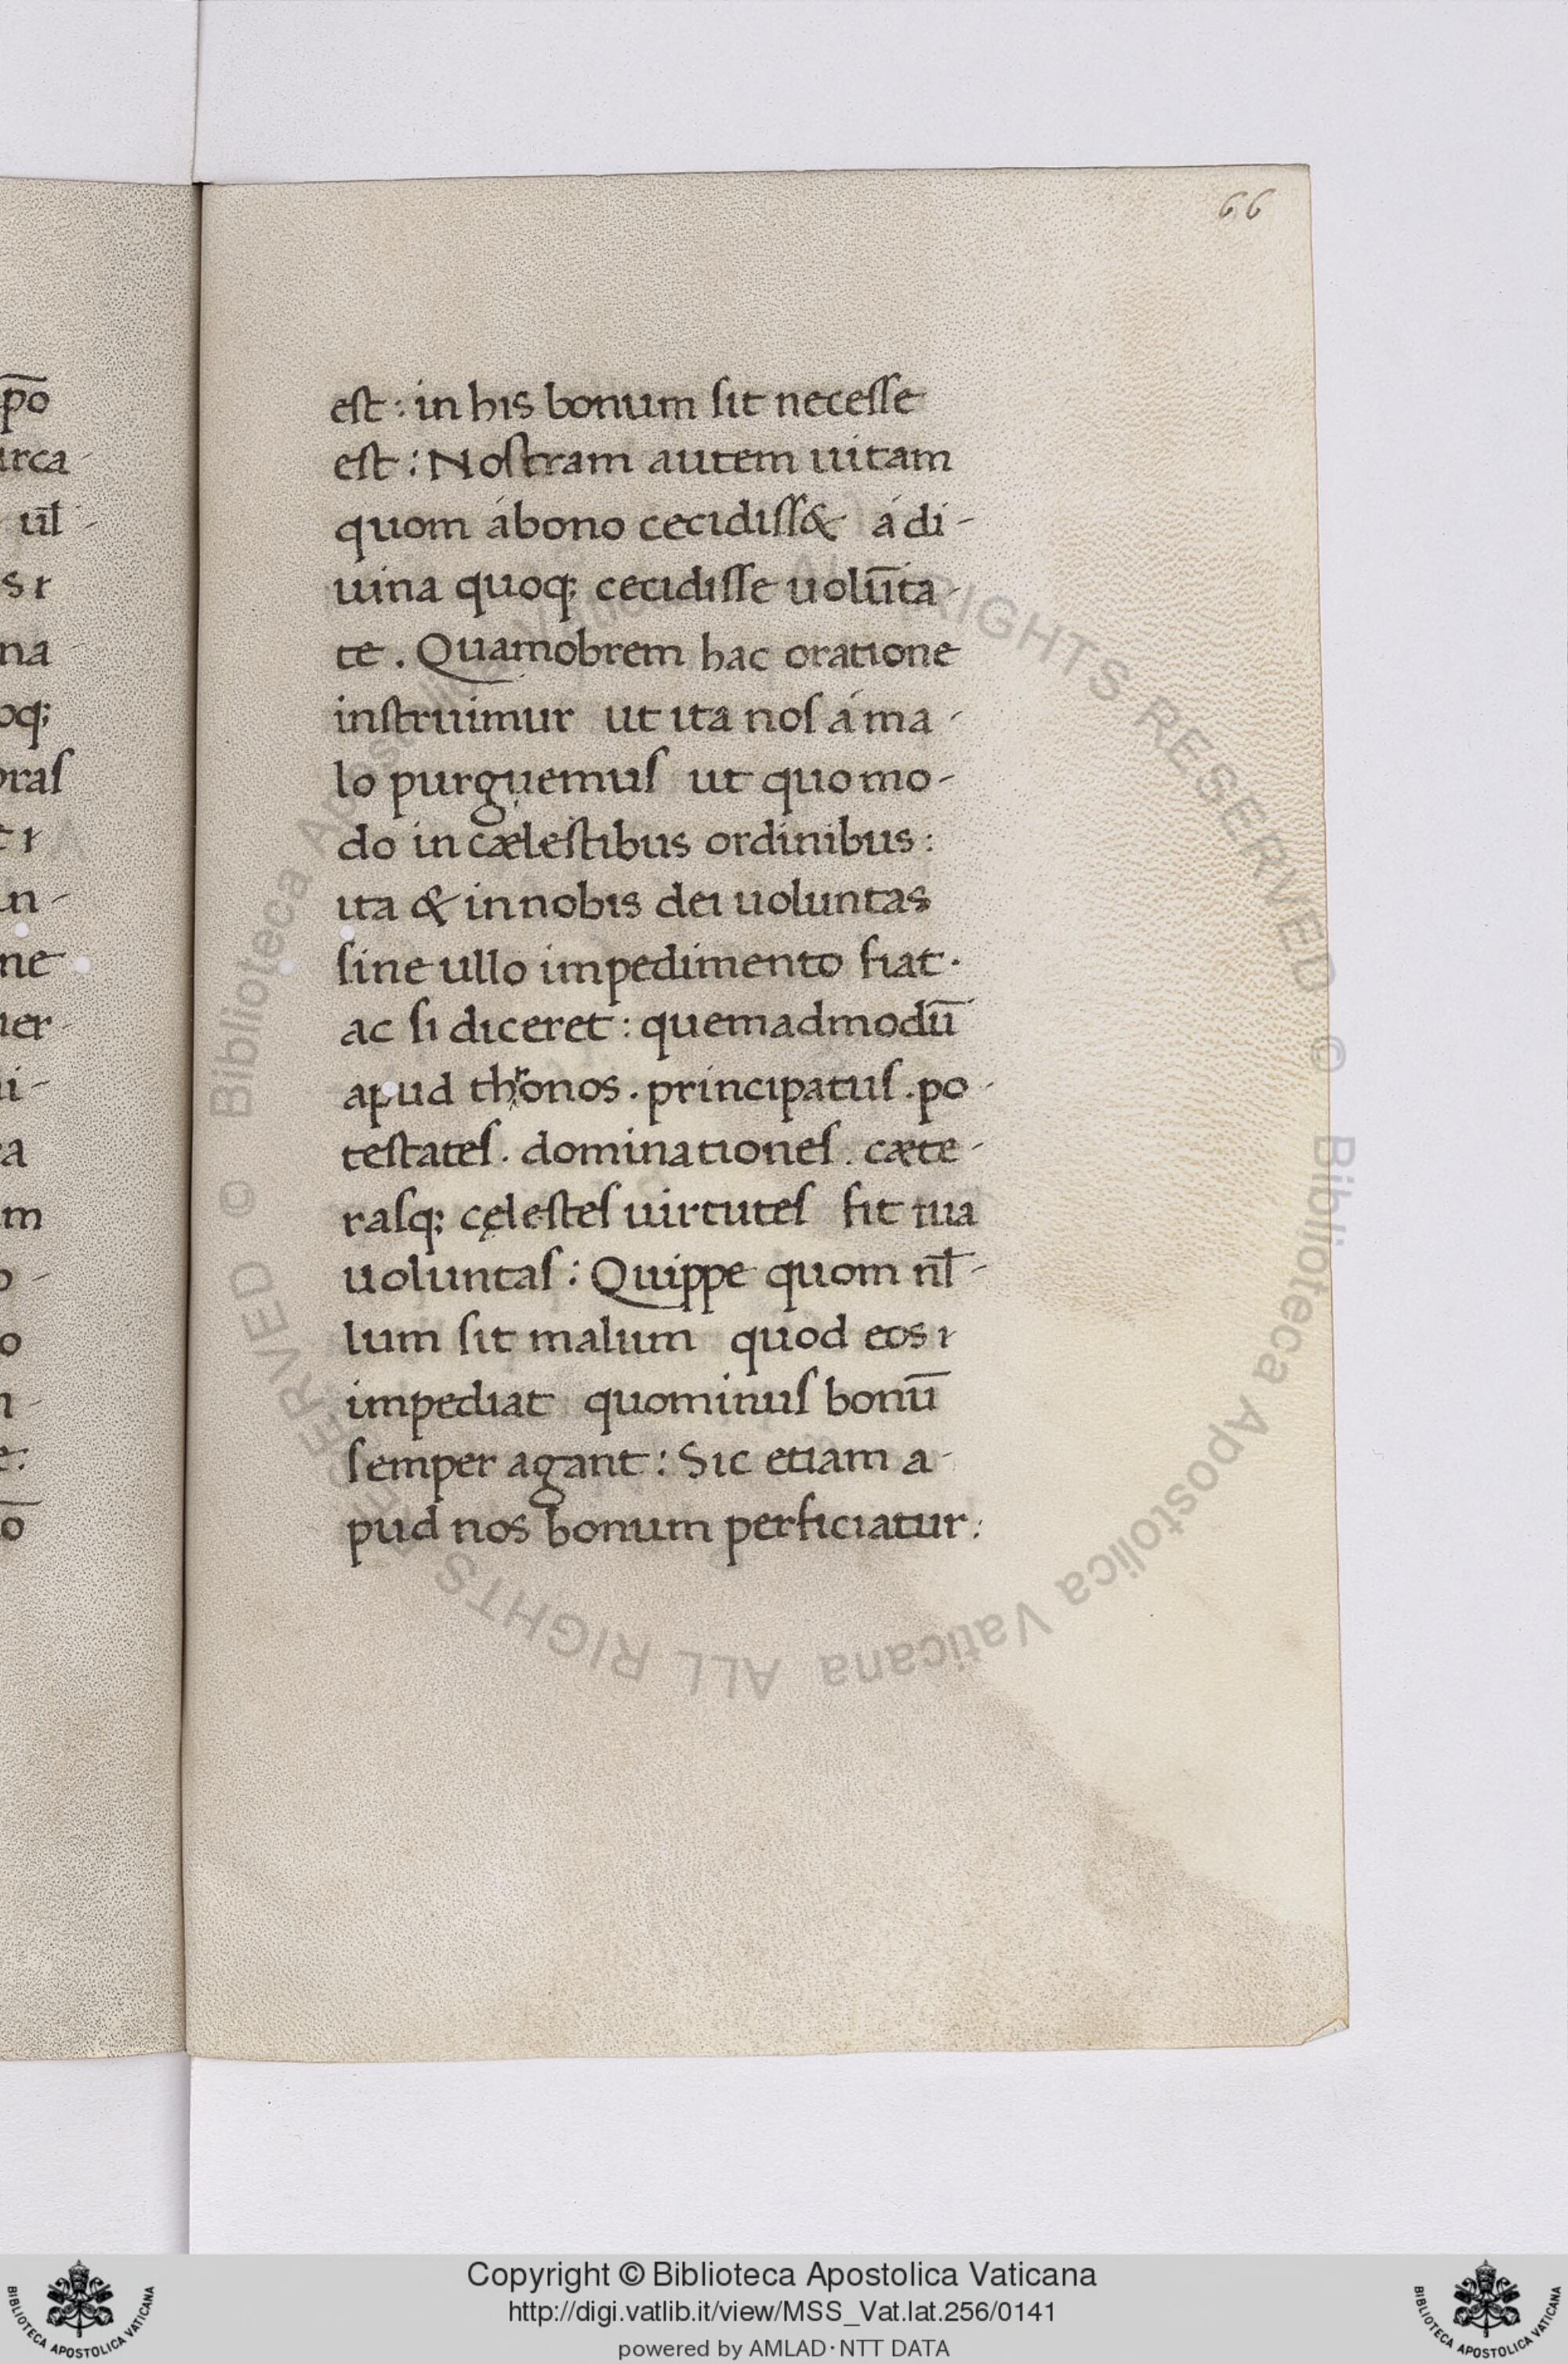 66
est : in his bonum sit necesse
est : Nostram autem uitam
quom á bono cecidiss& á di-
uina quoq; cecidisse uolūta-
te . Quamobrem hac oratione
instruimur ut ita nos á ma-
lo purguemus ut quo mo-
do in cælestibus ordinibus :
ita & in nobis dei uoluntas
sine ullo impedimento fiat .
ac si diceret : quemadmodū
apud thronos . principatus . po-
testates . dominationes . cæte-
rasq; cęlestes uirtutes fit tua
uoluntas : Quippe quom nl̄-
lum sit malum quod eos
impediat quominus bonū
semper agant : Sic etiam a-
pud nos bonum perficiatur :
p̄o
urca-
ul̄-
na
oq;
oras
in-
ne
uer-
ui-
ra
um
© Biblioteca Apostolica Vaticana ALL RIGHTS RESERVED © Biblioteca Apostolica Vaticana ALL RIGHTS RESERVED
Copyright © Biblioteca Apostolica Vaticana
http://digi.vatlib.it/view/MSS_Vat.lat.256/0141
powered by AMLAD·NTT DATA
BIBLIOTECA APOSTOLICA VATICANA
BIBLIOTECA APOSTOLICA VATICANA